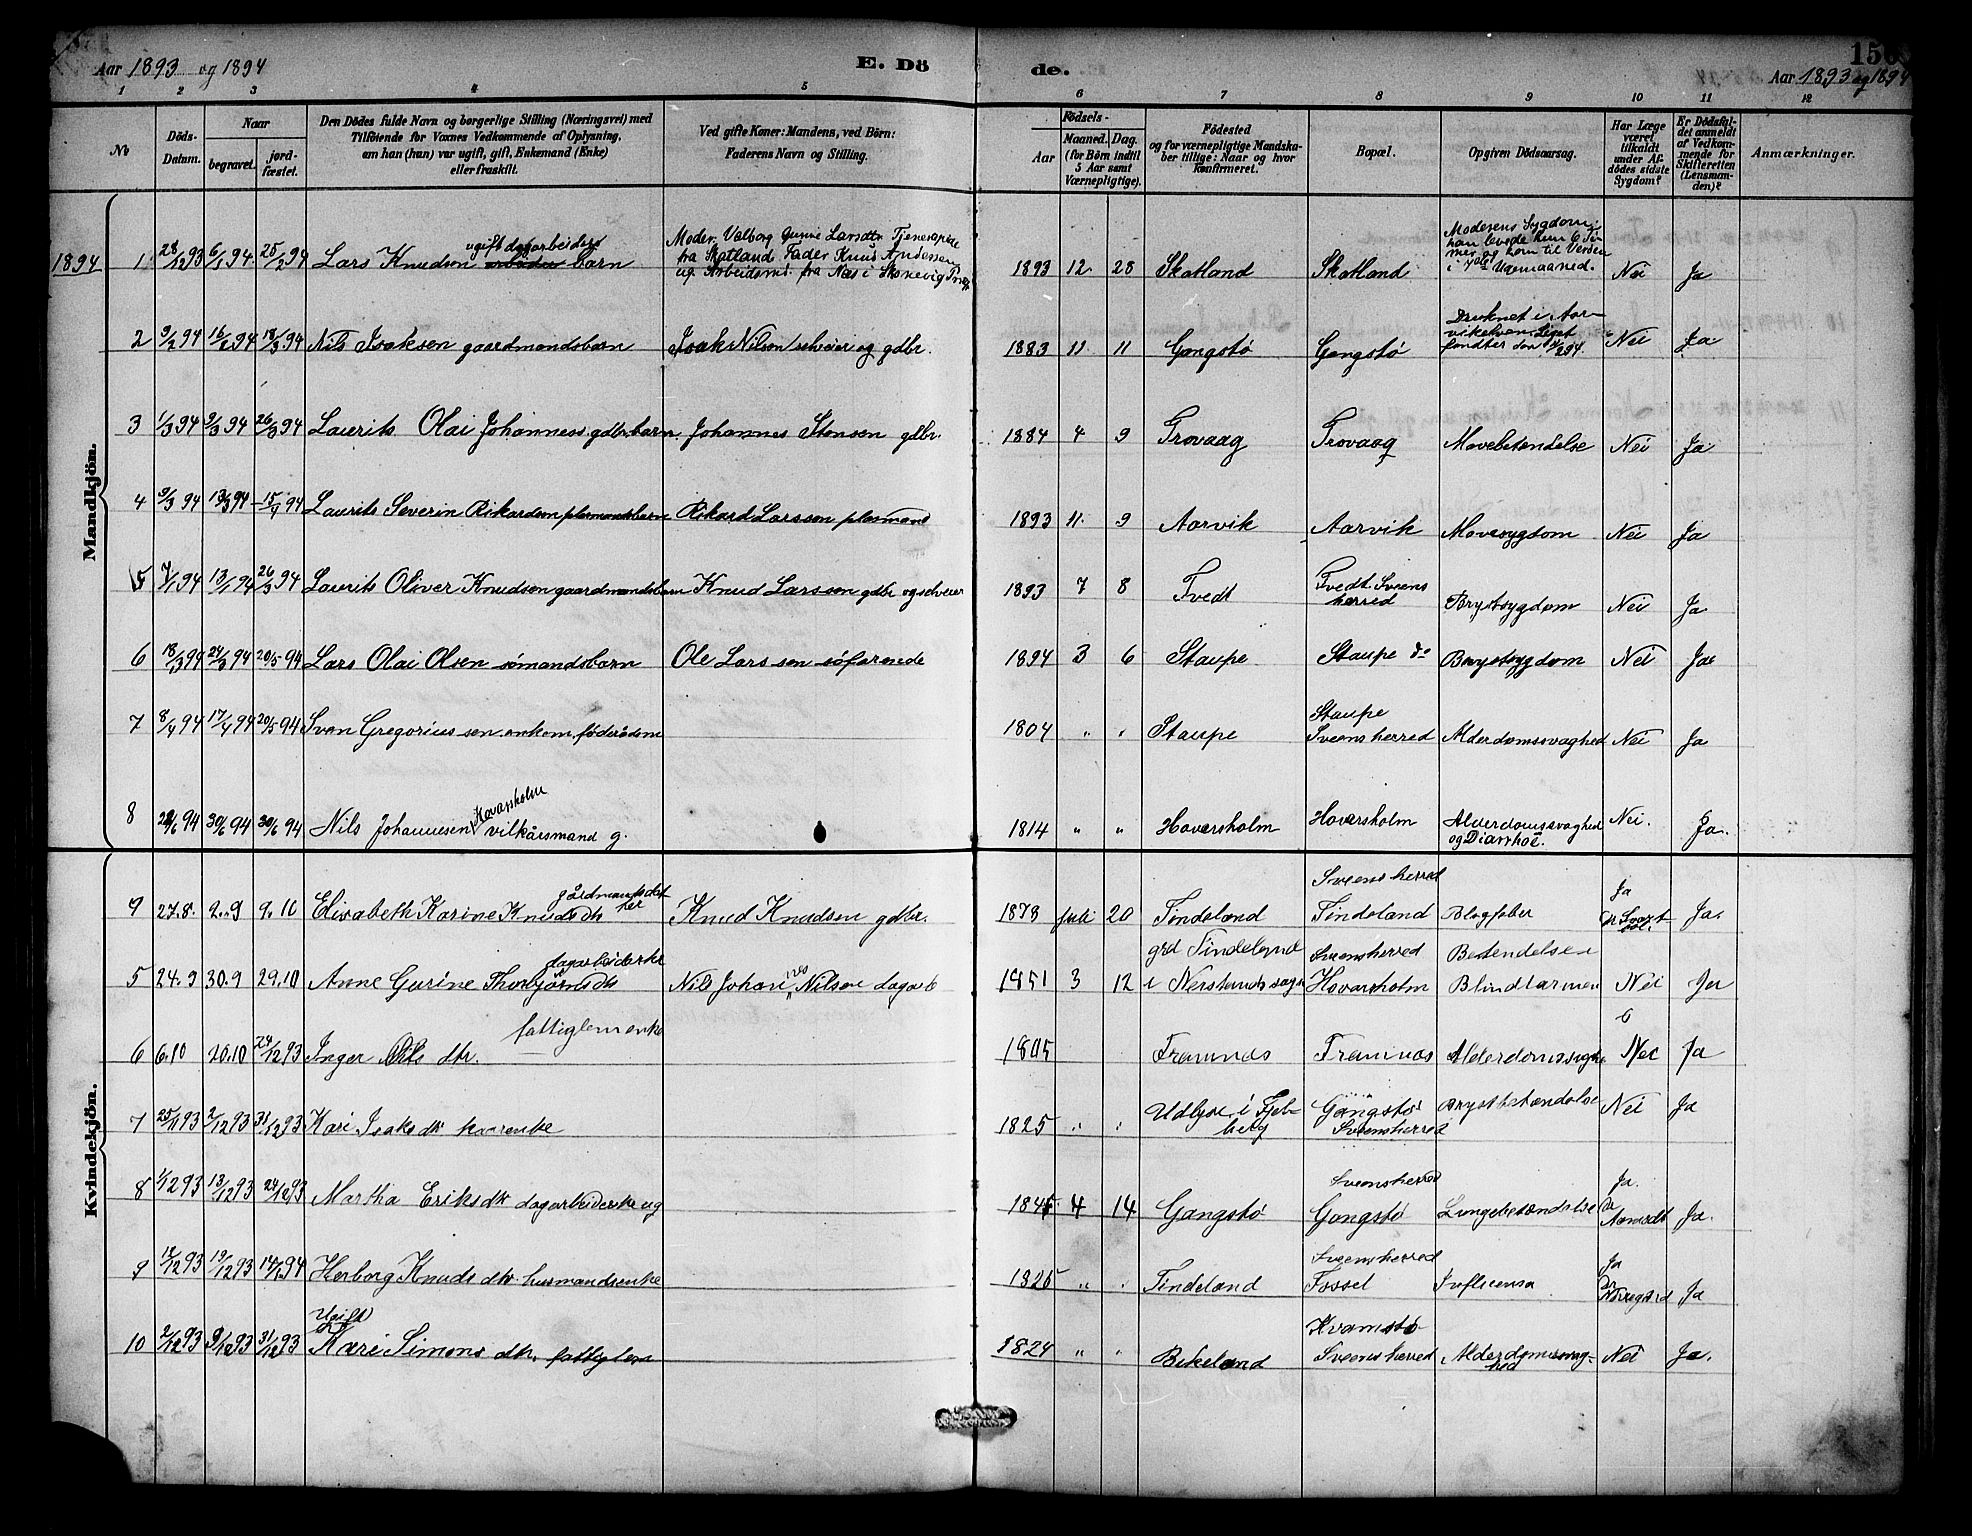 Aar 1893 og 1894
E. Dö
de.
156
Aar 1893 og 1894
1 2 3 4 5 6 7 8 9 10 11 12
No
Döds-Datum.
Naar
begravet.
jord-fæstet.
Den Dödes fulde Navn og borgerlige Stilling (Næringsvei) med
Tilföiende for Voxnes Vedkommende af Oplysning,
om han (hun) var ugift, gift, Enkemand (Enke)
eller fraskilt.
Ved gifte Koner: Mandens, ved Börn:
Faderens Navn og Stilling.
Födsels-
Aar
Maaned.
Dag.
(for Börn indtil
5 Aar samt
Værnepligtige).
Födested
og for værnepligtige Mandska-
ber tillige: Naar og hvor
konfirmeret.
Bopæl.
Opgiven Dödsaarsag.
Har Læge
været
tilkaldt
under Af-
dödes sidste
Sygdom?
Er Dödsfal-
det anmeldt
af Vedkom-
mende for
Skifteretten
(Lensman-
den)?
Anmærkninger.
Mandkjön.
1894 1 28/12 93 6/1 94 25/2 94 Lars Knudsen ugift dagarbeiders barn
Moder. Valborg Gurine Larsdtr Tjenestepige
fra Skatland Fader Knud Andersen
ug Arbeidsmd. fra Næs i Skonevig
1893 12. 28 Skatland Skatland
Moderens Sygdom;
han levede kun 6 Ti-
mer og kom til Verden
i 7de Ugemaaned.
Nei Ja
2 9/2 94 16/2 94 18/3 94 Nils Isaksen gaardmandsbarn Isak Nilsen selveier og gdbr.
1883 11 11 Gangstö Gangstö
Druknet i Aar-
vikelven Liget
fundter den
Nei Ja
3 1/3 94 9/3 94 26/3 94 Laurits Olai Johanness. gdbr.barn. Johannes Stensen gdbr.
1884 4 9 Trovaag Trovaag Mavebetendelse Nei Ja
4 9/3 94 13/3 94 15/4 94 Laurits Severin Rikardsen plasmandsbarn Rikard Larssen plasmand
1893 11. 9 Aarvik Aarvik Mavesygdom Nei Ja
5 7/1 94 13/1 94 26/3 94 Laurits Oliver Knudsen gaardmandsbarn Knud Larssen gdbr og selveier
1893 7 8 Tvedt Tvedt Sveens
herred Brystsygdom Nei Ja
6 18/3 94 24/3 94 20/5 94 Lars Olai Olsen sömandsbarn Ole Larssen söfarende
1894 3 6 Staupe Staupe do Brystsygdom Nei Ja
7 8/4 94 17/4 94 20/5 94 Sven Gregoriussen enkem. föderådsm
1804 " " Staupe Staupe
Sveensherred Alderdomssvaghed Nei Ja
8 94 30/6 94 30/6 94 Nils Johannesen Havarsholm
vilkårsmand g.
1814 " " Haversholm Haversholm Alderdomssvaghed
og Diarrhoe. Nei. Ja.
Kvindekjön.
9 27.8. 2.9 9.10 Elisabeth Karine Knudsdtr gårdmansdat
ter Knud Knudsen gdbr.
1873 juli 20 Tindeland Sveensherred
Tindeland Ja Ja.
5 24.9 30.9 29.10 Anne Gurine Thorbjörnsdtr dagarbeiderke Nils Johannes Nilsen dagarb
1851 3 12 grd Tindeland
i Nerstrands sogn Sveensherred
Havarsholm Betendelse i
Blindtarmen Nei Ja
6 6.10 20.10 24/12 93 Inger Nils dtr. fattiglem enke
1805 Framnas Framnas Nei Ja
7 25/11 93 2/12 93 31/12 93 Kari Isaksdtr kaarenke
1825 " " Udløse i Fjel-
berg Gangstö
Sveensherred Brystbetændelse Nei Ja
8 1/12 93 13/12 93 24/12 93 Martha Eriksdtr dagarbeiderske ug
1845 4 14 Gangstö Sveensherred
Gangstö Lungebetændelse Ja.
Dr Ja.
9 12/12 93 19/12 93 14/1 94 Herborg Knuds dtr husmandsenke
1825 " " Tindeland Sveensherred
Fossel Influensa Ja
Dr Ja
10 2/12 93 9/12 93 31/12 93 Ugift
Kari Simons dtr. fattiglem
1824 " " Bekeland Kvamstö
Sveensherred Alderdomssvag-
hed Nei Ja.